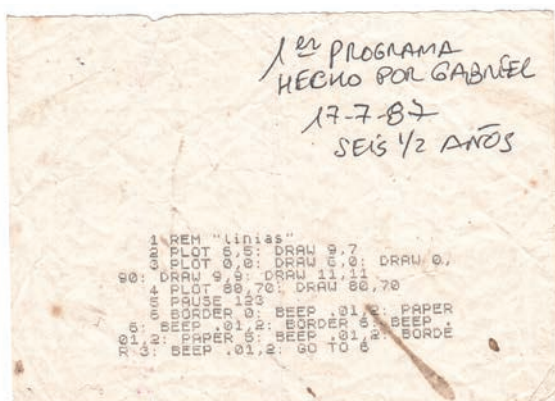 1er PROGRAMA
HECHO POR GABRIEL
17-7-87
SEIS 1/2 AÑOS
1 REM "linias"
2 PLOT 5,5: DRAW 9,7
3 PLOT 0,0: DRAW 6,0: DRAW 0,
90: DRAW 9,9: DRAW 11,11
4 PLOT 80,70: DRAW 80,70
5 PAUSE 123
6 BORDER 0: BEEP .01,2: PAPER
6: BEEP .01,2: BORDER 6: BEEP .
01,2: PAPER 5: BEEP .01,2: BORDE
R 3: BEEP .01,2: GO TO 6